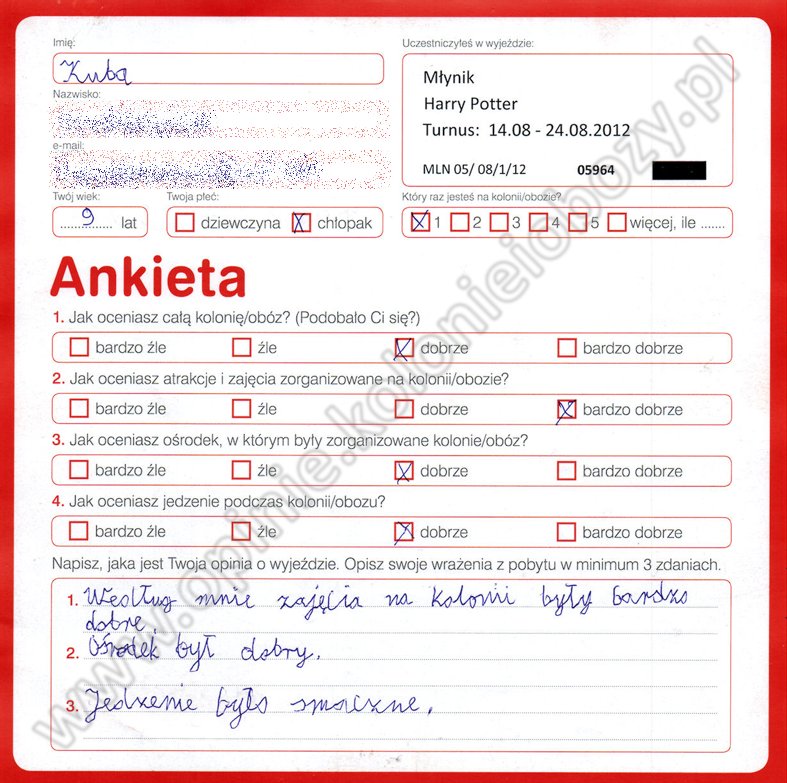 Imię:
Kuba
Nazwisko:
e-mail:
Twój wiek:
9 lat
Twoja płeć:
dziewczyna X chłopak
Uczestniczyłeś w wyjeździe:
Młynik
Harry Potter
Turnus: 14.08 - 24.08.2012
MLN 05/ 08/1/12 05964
Który raz jesteś na kolonii/obozie?
X 1 2 3 4 5 więcej, ile .......
Ankieta
1. Jak oceniasz całą kolonię/obóz? (Podobało Ci się?)
bardzo źle źle X dobrze bardzo dobrze
2. Jak oceniasz atrakcje i zajęcia zorganizowane na kolonii/obozie?
bardzo źle źle dobrze X bardzo dobrze
3. Jak oceniasz ośrodek, w którym były zorganizowane kolonie/obóz?
bardzo źle źle X dobrze bardzo dobrze
4. Jak oceniasz jedzenie podczas kolonii/obozu?
bardzo źle źle X dobrze bardzo dobrze
Napisz, jaka jest Twoja opinia o wyjeździe. Opisz swoje wrażenia z pobytu w minimum 3 zdaniach.
1. Według mnie zajęcia na kolonii były bardzo
dobre.
2. Ośrodek był dobry.
3. Jedzenie było smaczne.
www.opinie.kolonieiobozy.pl